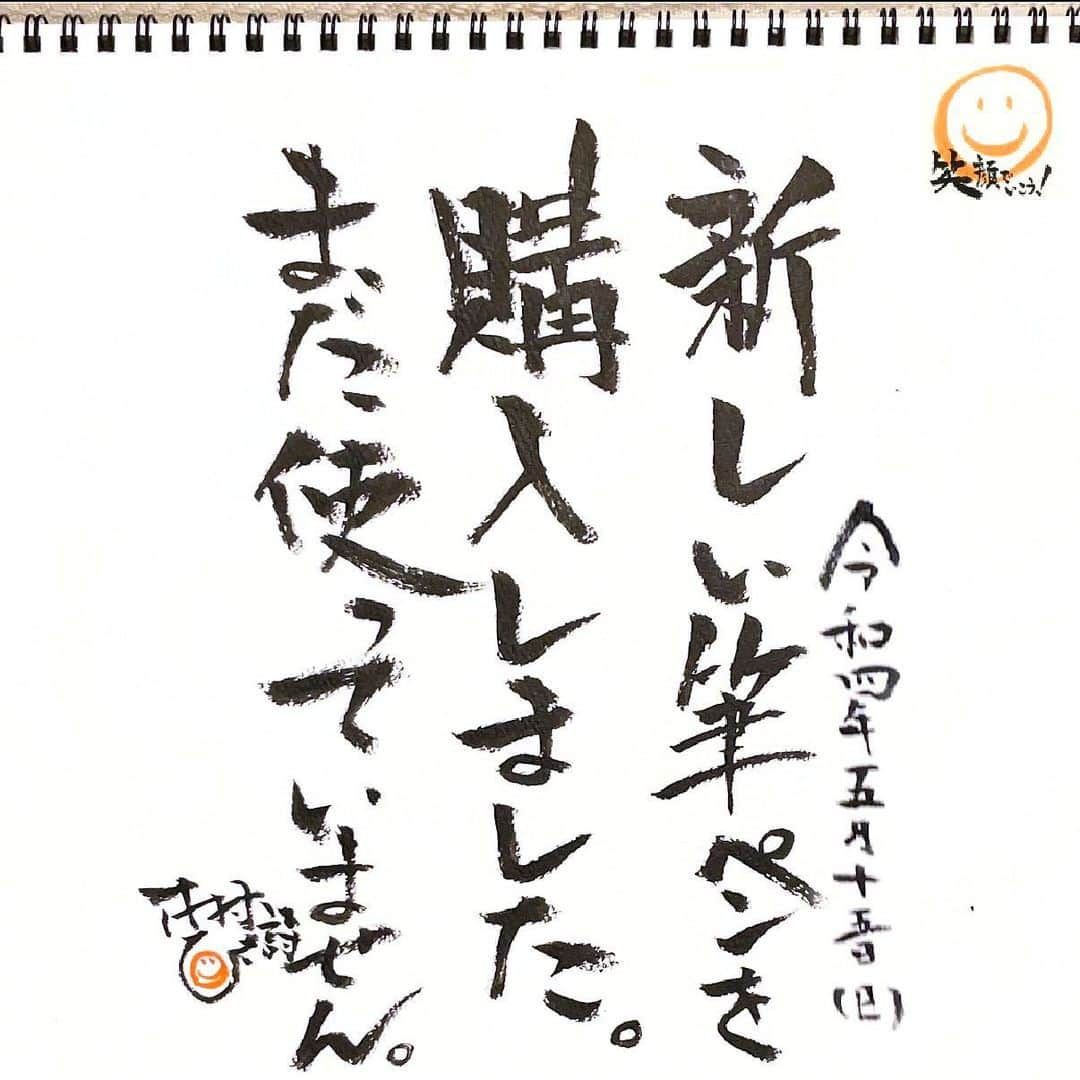 笑顔でいこう!
令和四年五月十五日(日)
新しい筆ペンを
購入しました。
まだ使っていません。